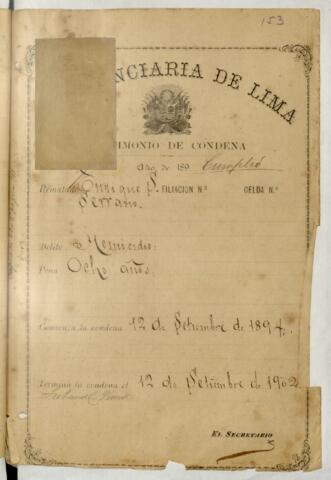 153
NCIARIA DE LIMA
IMONIO DE CONDENA
Año de 189 Cumplió
Rematado Enrique S. FILIACION N.º CELDA N.º
Serrano.
Delito Homicidio
Pena Ocho años.
Comienza la condena 12 de Setiembre de 1894.
Termina la condena el 12 de Setiembre de 1902
EL SECRETARIO